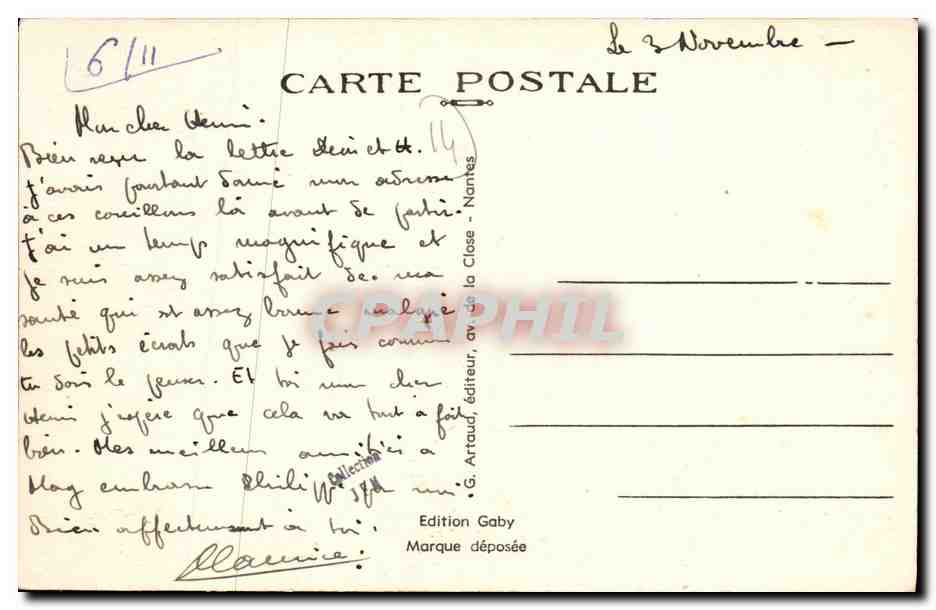 6/11
Le 3 Novembre -
CARTE POSTALE
14
Mon cher Henri.
Bien reçu la lettre
J'avais pourtant donné mon adresse
à ces couillons là avant de partir.
J'ai un temps magnifique et
je suis assez satisfait de ma
santé qui est assez bonne malgré
les petits écarts que je fais comme
tu dois le penser. Et toi mon cher
Henri j'espère que cela va tout à fait
bien. Mes meilleurs amitiés à
Mag embrasse Philippe pour moi
Bien affectueusement à toi.
Maurice
Collection
G. Artaud, éditeur, av. de la Close - Nantes
Edition Gaby
Marque déposée
CPAPHIL